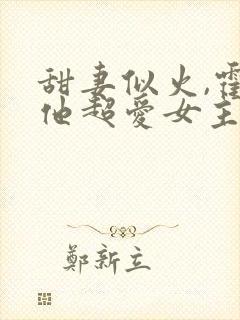 甜妻似火,霍
他超爱女主
鄭新立